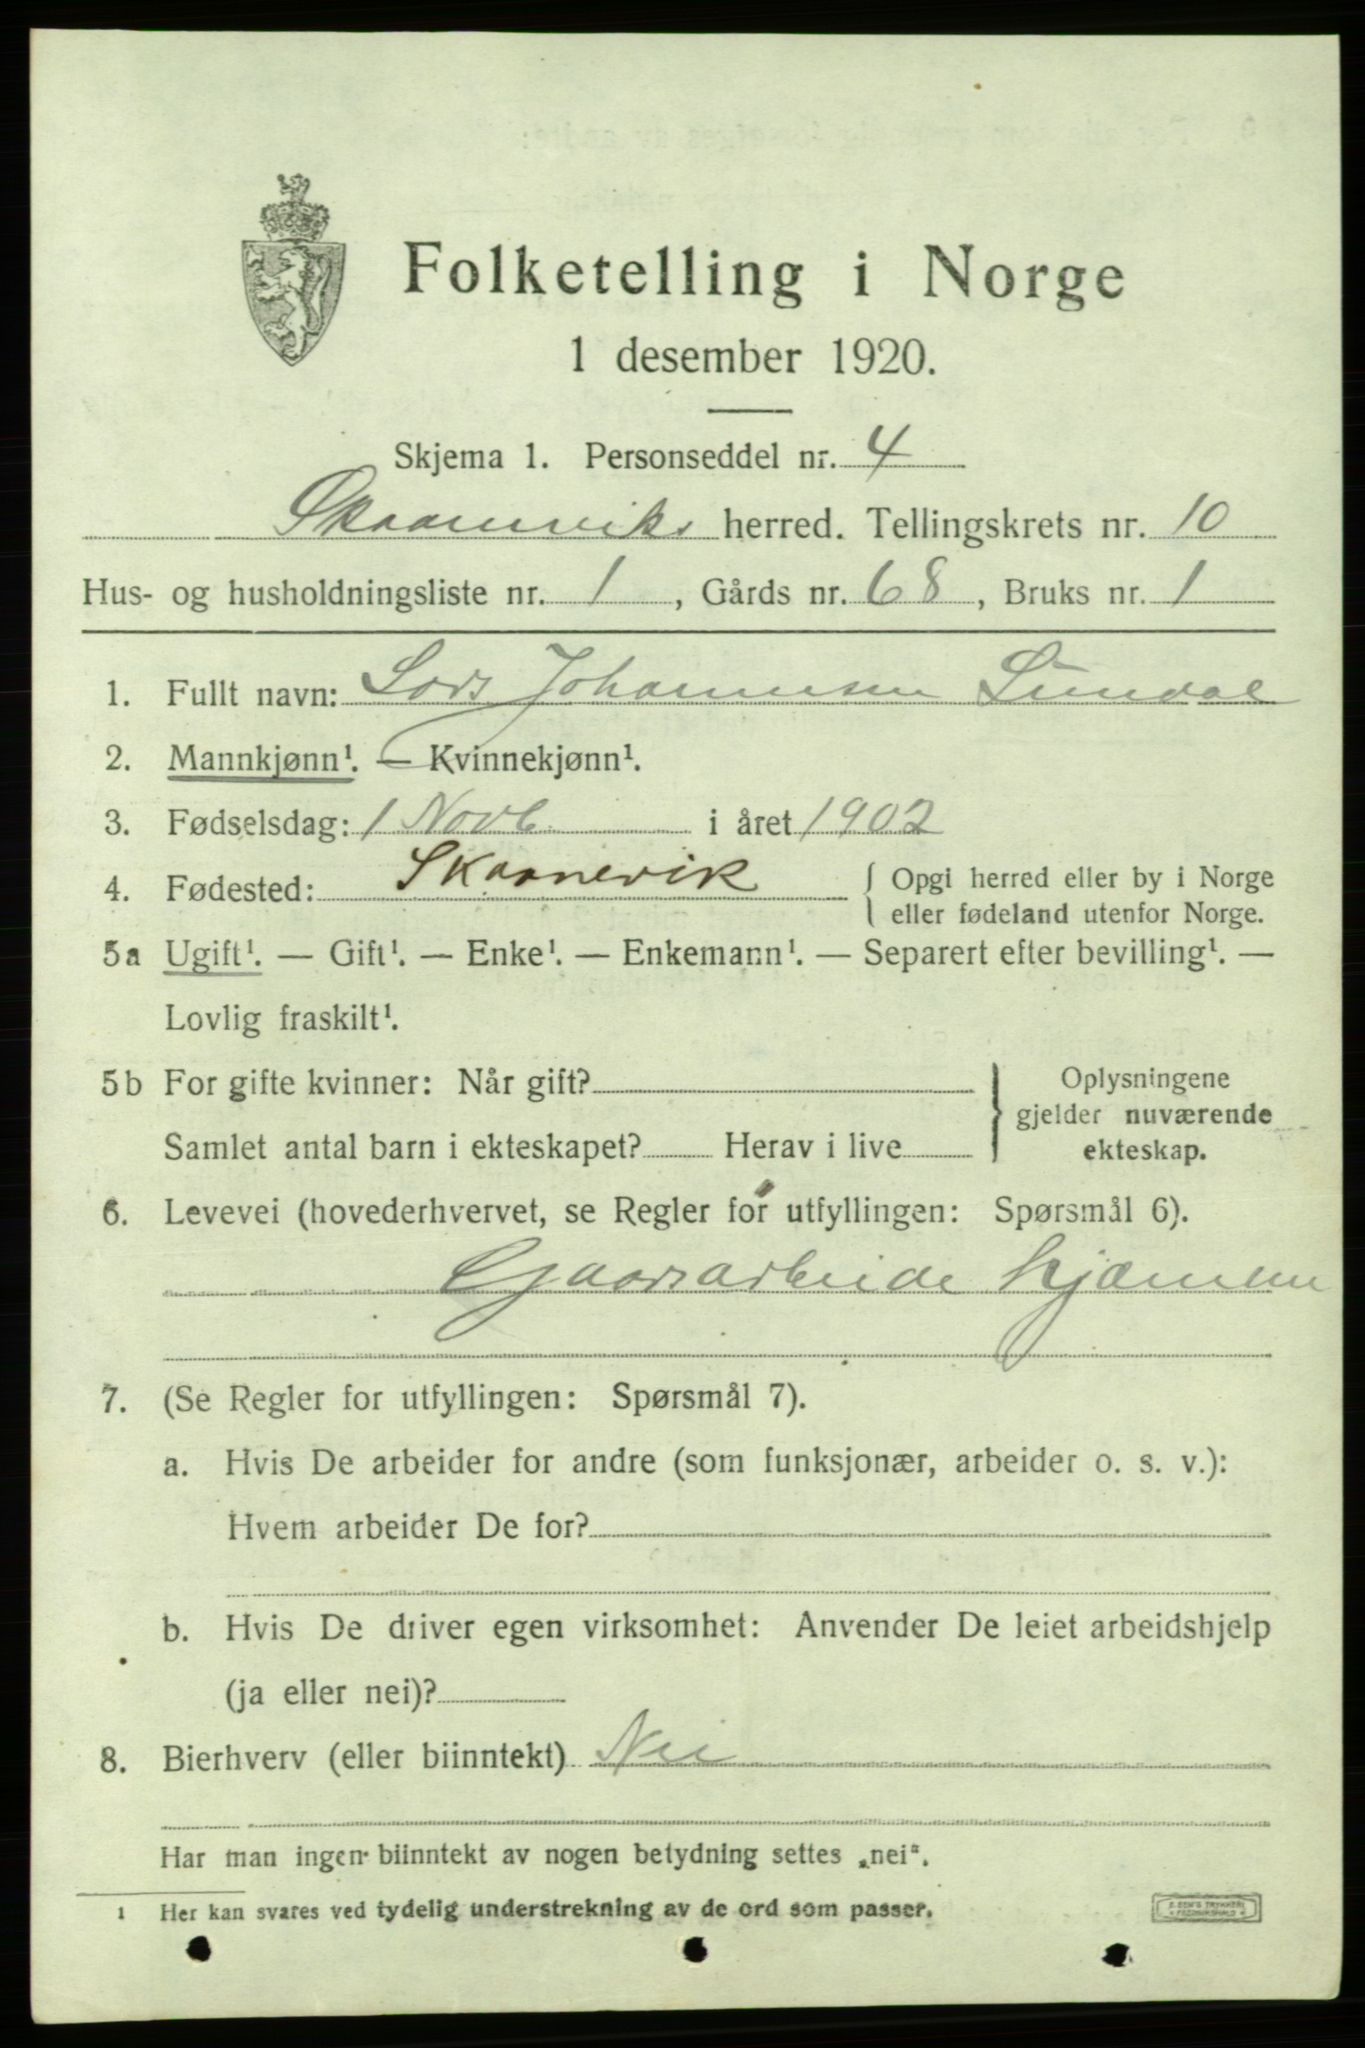 Folketelling i Norge
1 desember 1920.
Skjema 1. Personseddel nr. 4
Skaaneviks herred. Tellingskrets nr. 10
Hus- og husholdningsliste nr. 1, Gårds nr. 68, Bruks nr. 1
1. Fullt navn: Lars Johannesen Sundal
2. Mannkjønn¹. — Kvinnekjønn¹.
3. Fødselsdag: 1 Novb i året 1902
4. Fødested: Skaanevik { Opgi herred eller by i Norge
eller fødeland utenfor Norge.
5a Ugift¹. — Gift¹. — Enke¹. — Enkemann¹. — Separert efter bevilling¹. —
Lovlig fraskilt¹.
5b For gifte kvinner: Når gift? } Oplysningene
gjelder nuværende
Samlet antal barn i ekteskapet? Herav i live ekteskap.
6. Levevei (hovederhvervet, se Regler for utfyllingen: Spørsmål 6).
Gaarsarbeide hjæmme
7. (Se Regler for utfyllingen: Spørsmål 7).
a. Hvis De arbeider for andre (som funksjonær, arbeider o. s. v.):
Hvem arbeider De for?
b. Hvis De driver egen virksomhet: Anvender De leiet arbeidshjelp
(ja eller nei)?
8. Bierhverv (eller biinntekt) Nei
Har man ingen biinntekt av nogen betydning settes „nei“.
1 Her kan svares ved tydelig understrekning av de ord som passer.